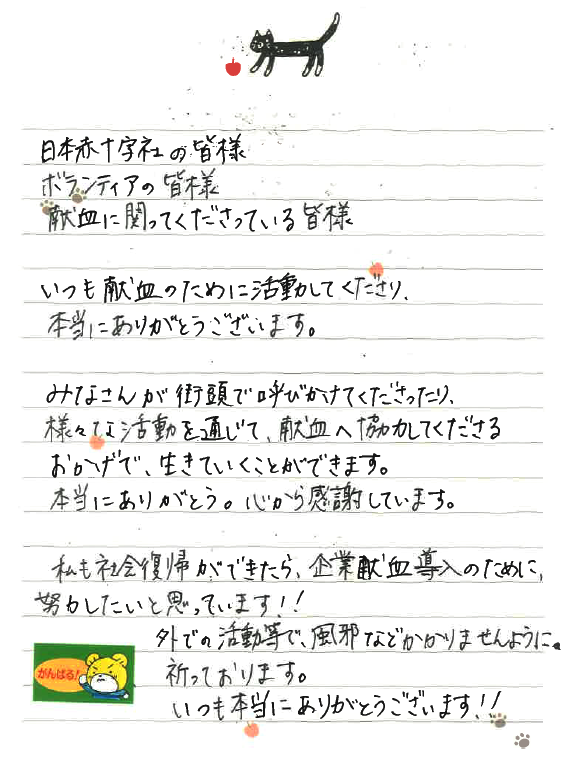 日本赤十字社の皆様
ボランティアの皆様
献血に関ってくださっている皆様
いつも献血のために活動してくださり、
本当にありがとうございます。
みなさんが街頭で呼びかけてくださったり、
様々な活動を通じて、献血へ協力してくださる
おかげで、生きていくことができます。
本当にありがとう。心から感謝しています。
私も社会復帰ができたら、企業献血導入のために、
努力したいと思っています!!
外での活動等で、風邪などかかりませんように。
祈っております。
いつも本当にありがとうございます!!
がんばる!